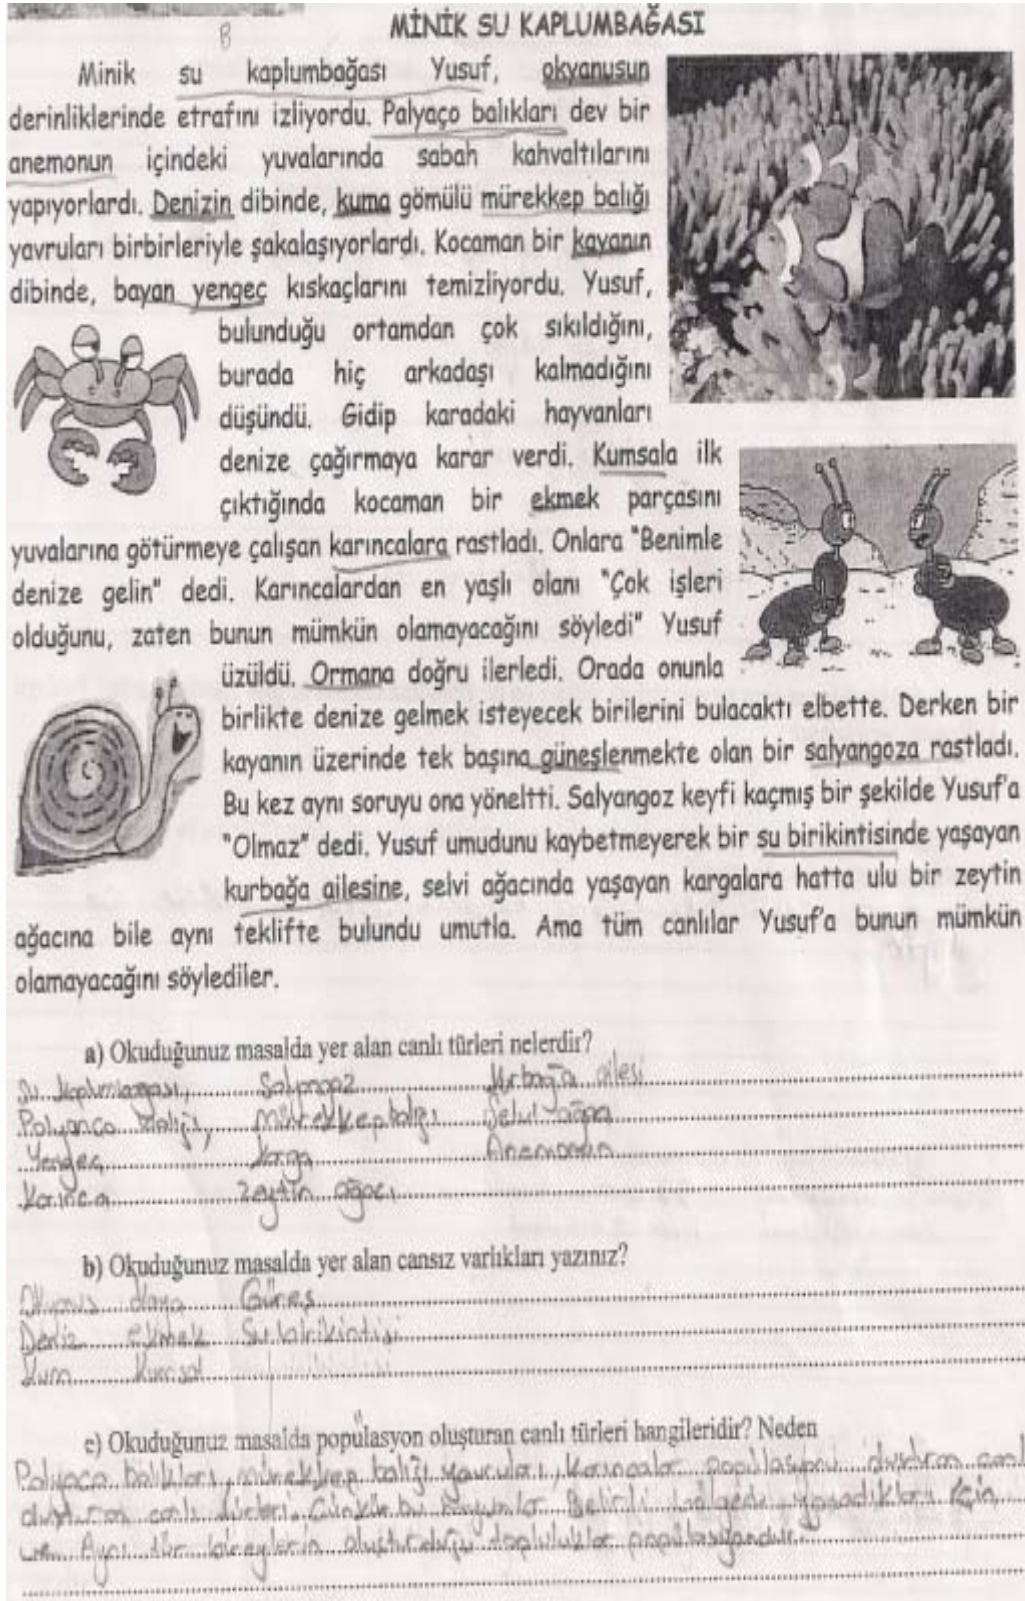 MİNİK SU KAPLUMBAĞASI
B
Minik su kaplumbağası Yusuf, okyanusun
derinliklerinde etrafını izliyordu. Palyaço balıkları dev bir
anemonun içindeki yuvalarında sabah kahvaltılarını
yapıyorlardı. Denizin dibinde, kuma gömülü mürekkep balığı
yavruları birbirleriyle şakalaşıyorlardı. Kocaman bir kayanın
dibinde, bayan yengeç kıskaçlarını temizliyordu. Yusuf,
bulunduğu ortamdan çok sıkıldığını,
burada hiç arkadaşı kalmadığını
düşündü. Gidip karadaki hayvanları
denize çağırmaya karar verdi. Kumsala ilk
çıktığında kocaman bir ekmek parçasını
yuvalarına götürmeye çalışan karıncalara rastladı. Onlara "Benimle
denize gelin" dedi. Karıncalardan en yaşlı olanı "Çok işleri
olduğunu, zaten bunun mümkün olamayacağını söyledi" Yusuf
üzüldü. Ormana doğru ilerledi. Orada onunla
birlikte denize gelmek isteyecek birilerini bulacaktı elbette. Derken bir
kayanın üzerinde tek başına güneşlenmekte olan bir salyangoza rastladı.
Bu kez aynı soruyu ona yöneltti. Salyangoz keyfi kaçmış bir şekilde Yusuf'a
"Olmaz" dedi. Yusuf umudunu kaybetmeyerek bir su birikintisinde yaşayan
kurbağa ailesine, selvi ağacında yaşayan kargalara hatta ulu bir zeytin
ağacına bile aynı teklifte bulundu umutla. Ama tüm canlılar Yusuf'a bunun mümkün
olamayacağını söylediler.
a) Okuduğunuz masalda yer alan canlı türleri nelerdir?
Su kaplumbağası, Salyangoz Kurbağa ailesi
Palyanço balığı, Mürekkep balığı Selvi ağacı
Yengeç Karga Anemonun
Karınca Zeytin ağacı
b) Okuduğunuz masalda yer alan cansız varlıkları yazınız?
Okyanus Kaya Güneş
Deniz Ekmek Su birikintisi
Kum Kumsal
c) Okuduğunuz masalda popülasyon oluşturan canlı türleri hangileridir? Neden
Palyaço balıkları, mürekkep balığı yavruları, Karıncalar popülasyonu oluşturan canlı
oluşturan canlı türleri. Çünkü bu hayvanlar Belirli bölgede yaşadıkları için
ve Aynı tür bireylerin oluşturduğu topluluklar popülasyondur.